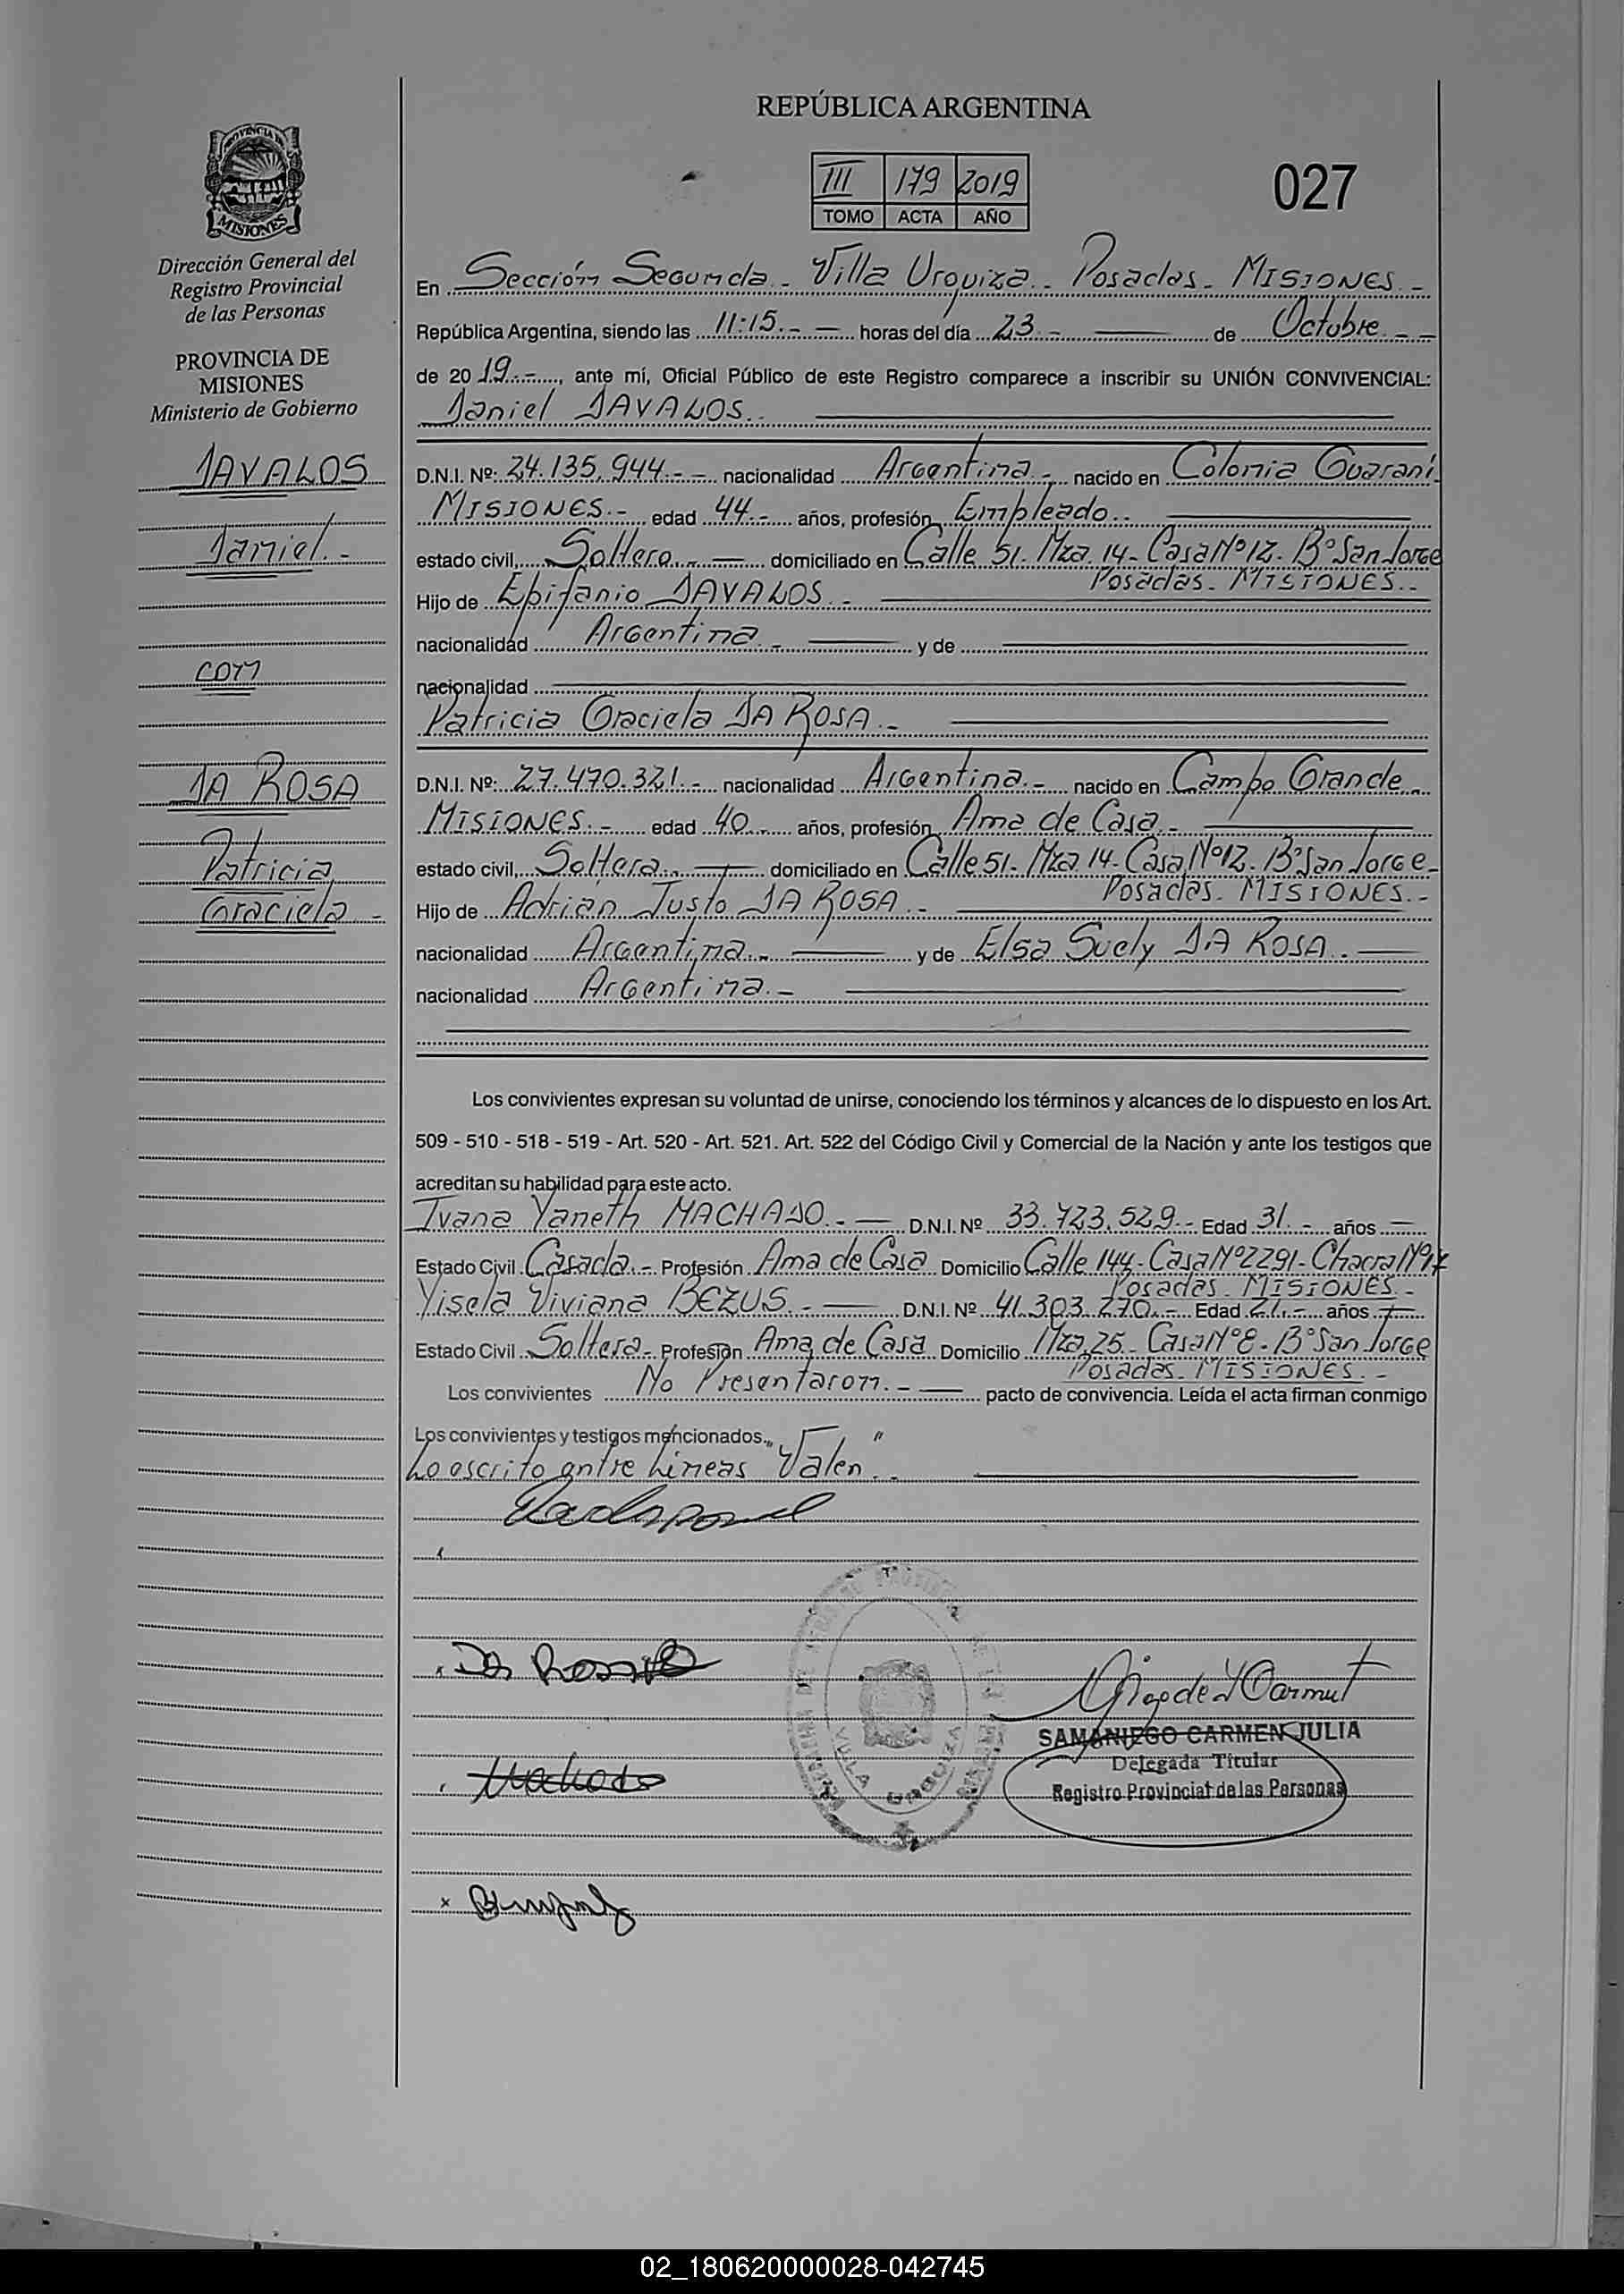 REPÚBLICA ARGENTINA
III 179 2019
TOMO ACTA AÑO
027
PROVINCIA DE
MISIONES
Dirección General del
Registro Provincial
de las Personas
PROVINCIA DE
MISIONES
Ministerio de Gobierno
DAVALOS
Daniel.-
con
DA ROSA
Patricia
Graciela -
En Sección Segunda.- Villa Urquiza.- Posadas.- MISIONES.-
República Argentina, siendo las 11:15.- horas del día 23.- de Octubre.-
de 20 19.-, ante mí, Oficial Público de este Registro comparece a inscribir su UNIÓN CONVIVENCIAL:
Daniel DAVALOS.-
D.N.I. Nº: 24.135.944.- nacionalidad Argentina.- nacido en Colonia Guaraní
MISIONES.- edad 44.- años, profesión Empleado.-
estado civil, Soltero.- domiciliado en Calle 51. Mza. 14- Casa Nº 12. Bº San Jorge
Posadas.- MISIONES.-
Hijo de Epifanio DAVALOS.-
nacionalidad Argentina.- y de
nacionalidad
Patricia Graciela DA ROSA.-
D.N.I. Nº: 27.470.321.- nacionalidad Argentina.- nacido en Campo Grande.-
MISIONES.- edad 40.- años, profesión Ama de Casa.-
estado civil, Soltera.- domiciliado en Calle 51- Mza 14- Casa Nº12. Bº San Jorge-
Posadas.- MISIONES.-
Hijo de Adrián Justo DA ROSA.-
nacionalidad Argentina.- y de Elsa Suely DA ROSA.-
nacionalidad Argentina.-
Los convivientes expresan su voluntad de unirse, conociendo los términos y alcances de lo dispuesto en los Art.
509 - 510 - 518 - 519 - Art. 520 - Art. 521. Art. 522 del Código Civil y Comercial de la Nación y ante los testigos que
acreditan su habilidad para este acto.
Ivana Yaneth MACHADO.- D.N.I. Nº 33.723.529.- Edad 31.- años
Estado Civil Casada.- Profesión Ama de Casa Domicilio Calle 144- Casa Nº2291- Chacra Nº
Posadas MISIONES-
Yisela Viviana BEZUS.- D.N.I. Nº 41.303.270.- Edad 21.- años
Estado Civil Soltera- Profesión Ama de Casa Domicilio Mza. 25- Casa Nº 8- Bº San Jorge
Posadas. MISIONES.-
Los convivientes No Presentaron.- pacto de convivencia. Leída el acta firman conmigo
Los convivientes y testigos mencionados.
Lo escrito entre Líneas "Valen".
Da Rosa
VILLA URQUIZA
Machado
SAMANIEGO CARMEN JULIA
Delegada Titular
Registro Provincial de las Personas
02_180620000028-042745